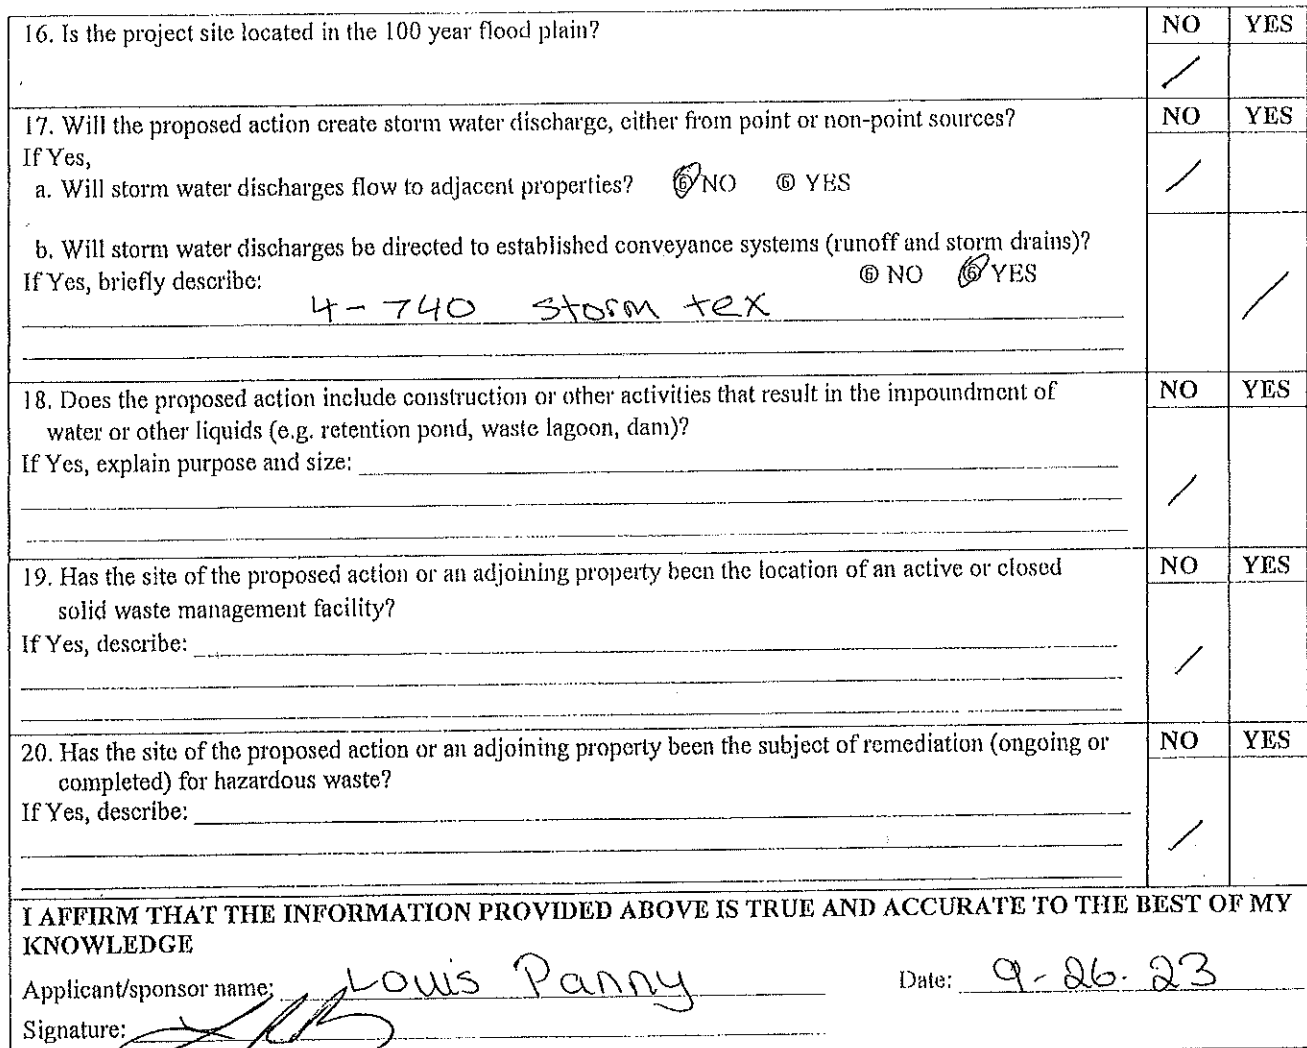 16. Is the project site located in the 100 year flood plain?
NO YES
/
17. Will the proposed action create storm water discharge, either from point or non-point sources?
NO YES
If Yes,
/
a. Will storm water discharges flow to adjacent properties? NO YES
b. Will storm water discharges be directed to established conveyance systems (runoff and storm drains)?
If Yes, briefly describe: NO YES
/
4-740 Storm tex
18. Does the proposed action include construction or other activities that result in the impoundment of
NO YES
water or other liquids (e.g. retention pond, waste lagoon, dam)?
If Yes, explain purpose and size:
/
19. Has the site of the proposed action or an adjoining property been the location of an active or closed
NO YES
solid waste management facility?
If Yes, describe:
/
20. Has the site of the proposed action or an adjoining property been the subject of remediation (ongoing or
NO YES
completed) for hazardous waste?
If Yes, describe:
/
I AFFIRM THAT THE INFORMATION PROVIDED ABOVE IS TRUE AND ACCURATE TO THE BEST OF MY
KNOWLEDGE
Applicant/sponsor name: Louis Panny Date: 9-26-23
Signature: